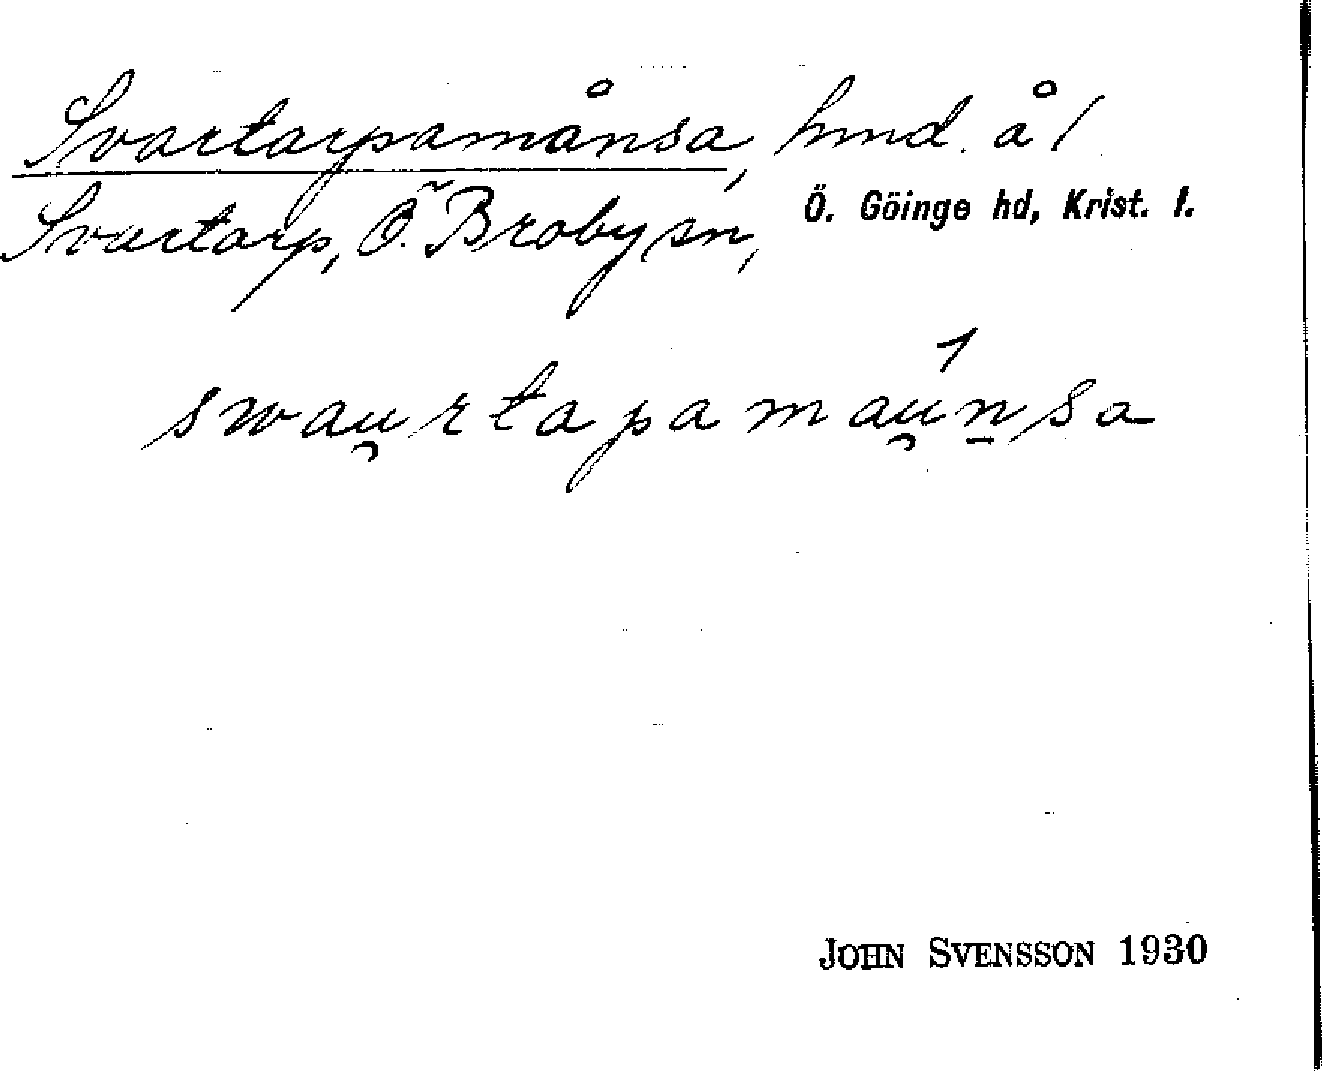 Svartarpamånsa, hmd. å 1
Svartarp, Ö. Broby sn, Ö. Göinge hd, Krist. l.
swau̯rtapamaú̯n̠sa
JOHN SVENSSON 1930